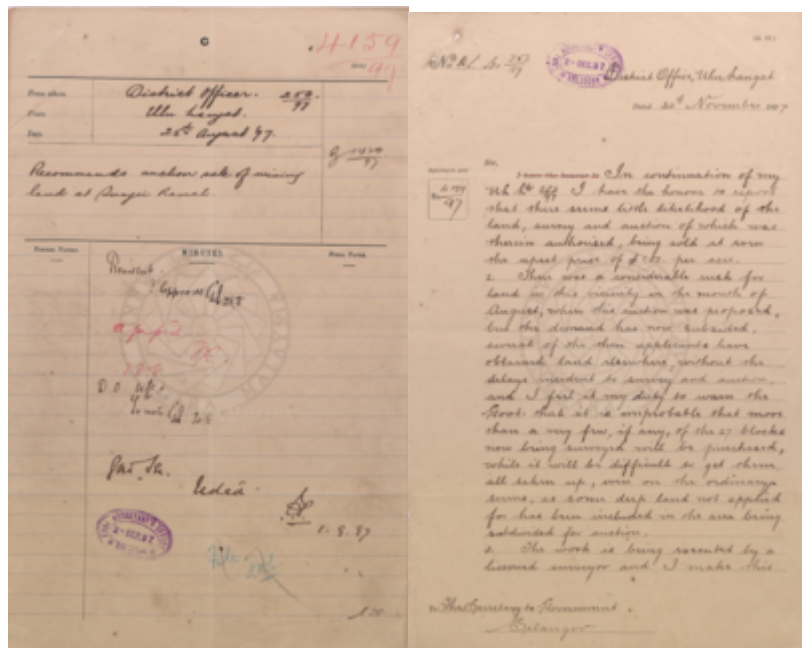 4159
97
From whom District Officer. 252.
97
Place Ulu Langat.
Date 25th August '97.
Recommends auction sale of mining
land at Sungei Ramal.
Former Papers MINUTES. Further Papers
Resident
? Approve
D. O.
To note
Noted
1. 9. 97
2-DEC.97
2-DEC.97
District Office, Ulu Langat
Dated 30th November 1897
Sir,
I have the honour to In continuation of my
I have the honour to report
that there seems little likelihood of the
land, survey and auction of which was
therein authorised, being sold at even
the upset price of per acre.
2. There was a considerable rush for
land in this vicinity in the month of
August, when this auction was proposed,
but the demand has now subsided.
several of the then applicants have
obtained land elsewhere, without the
delays incident to survey and auction.
and I feel it my duty to warn the
Govt. that it is improbable that more
than a very few, if any, of the 27 blocks
now being surveyed will be purchased,
while it will be difficult to get them
all taken up, even on the ordinary
terms, as some deep land not applied
for has been included in the area being
subdivided for auction.
3. The work is being executed by a
licensed surveyor and I make this
The Secretary to Government,
Selangor